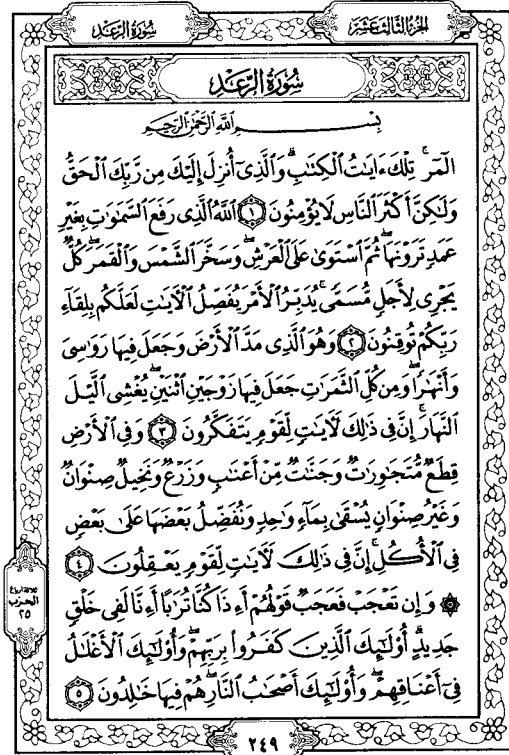 سُورَةُ الرَّعۡدِ
الجُزءُ الثَّالِثَ عَشَرَ
سُورَةُ الرَّعۡدِ
بِسۡمِ ٱللَّهِ ٱلرَّحۡمَٰنِ ٱلرَّحِيمِ
الٓمٓرۚ تِلۡكَ ءَايَٰتُ ٱلۡكِتَٰبِۗ وَٱلَّذِيٓ أُنزِلَ إِلَيۡكَ مِن رَّبِّكَ ٱلۡحَقُّ
وَلَٰكِنَّ أَكۡثَرَ ٱلنَّاسِ لَا يُؤۡمِنُونَ ١ ٱللَّهُ ٱلَّذِي رَفَعَ ٱلسَّمَٰوَٰتِ بِغَيۡرِ
عَمَدٖ تَرَوۡنَهَاۖ ثُمَّ ٱسۡتَوَىٰ عَلَى ٱلۡعَرۡشِۖ وَسَخَّرَ ٱلشَّمۡسَ وَٱلۡقَمَرَۖ كُلّٞ
يَجۡرِي لِأَجَلٖ مُّسَمّٗىۚ يُدَبِّرُ ٱلۡأَمۡرَ يُفَصِّلُ ٱلۡأٓيَٰتِ لَعَلَّكُم بِلِقَآءِ
رَبِّكُمۡ تُوقِنُونَ ٢ وَهُوَ ٱلَّذِي مَدَّ ٱلۡأَرۡضَ وَجَعَلَ فِيهَا رَوَٰسِيَ
وَأَنۡهَٰرٗاۖ وَمِن كُلِّ ٱلثَّمَرَٰتِ جَعَلَ فِيهَا زَوۡجَيۡنِ ٱثۡنَيۡنِۖ يُغۡشِي ٱلَّيۡلَ
ٱلنَّهَارَۚ إِنَّ فِي ذَٰلِكَ لَأٓيَٰتٖ لِّقَوۡمٖ يَتَفَكَّرُونَ ٣ وَفِي ٱلۡأَرۡضِ
قِطَعٞ مُّتَجَٰوِرَٰتٞ وَجَنَّٰتٞ مِّنۡ أَعۡنَٰبٖ وَزَرۡعٞ وَنَخِيلٞ صِنۡوَانٞ
وَغَيۡرُ صِنۡوَانٖ يُسۡقَىٰ بِمَآءٖ وَٰحِدٖ وَنُفَضِّلُ بَعۡضَهَا عَلَىٰ بَعۡضٖ
فِي ٱلۡأُكُلِۚ إِنَّ فِي ذَٰلِكَ لَأٓيَٰتٖ لِّقَوۡمٖ يَعۡقِلُونَ ٤
۞ وَإِن تَعۡجَبۡ فَعَجَبٞ قَوۡلُهُمۡ أَءِذَا كُنَّا تُرَٰبًا أَءِنَّا لَفِي خَلۡقٖ
جَدِيدٍۗ أُوْلَٰٓئِكَ ٱلَّذِينَ كَفَرُواْ بِرَبِّهِمۡۖ وَأُوْلَٰٓئِكَ ٱلۡأَغۡلَٰلُ
فِيٓ أَعۡنَاقِهِمۡۖ وَأُوْلَٰٓئِكَ أَصۡحَٰبُ ٱلنَّارِۖ هُمۡ فِيهَا خَٰلِدُونَ ٥
ثلاثة أرباع
الحزب
٢٥
٢٤٩